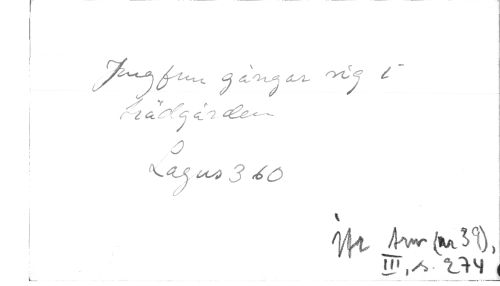 Jungfrun gångar sig i
trädgården
Lagus 360
Jfr Arw (nr 39),
III, s. 274